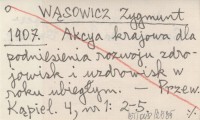 WĄSOWICZ Zygmunt
1907. Akcya krajowa dla
podniesienia rozwoju zdro-
jowisk i uzdrowisk w
roku ubiegłym. — Przew.
Kąpiel. 4, nr 1: 2-5.